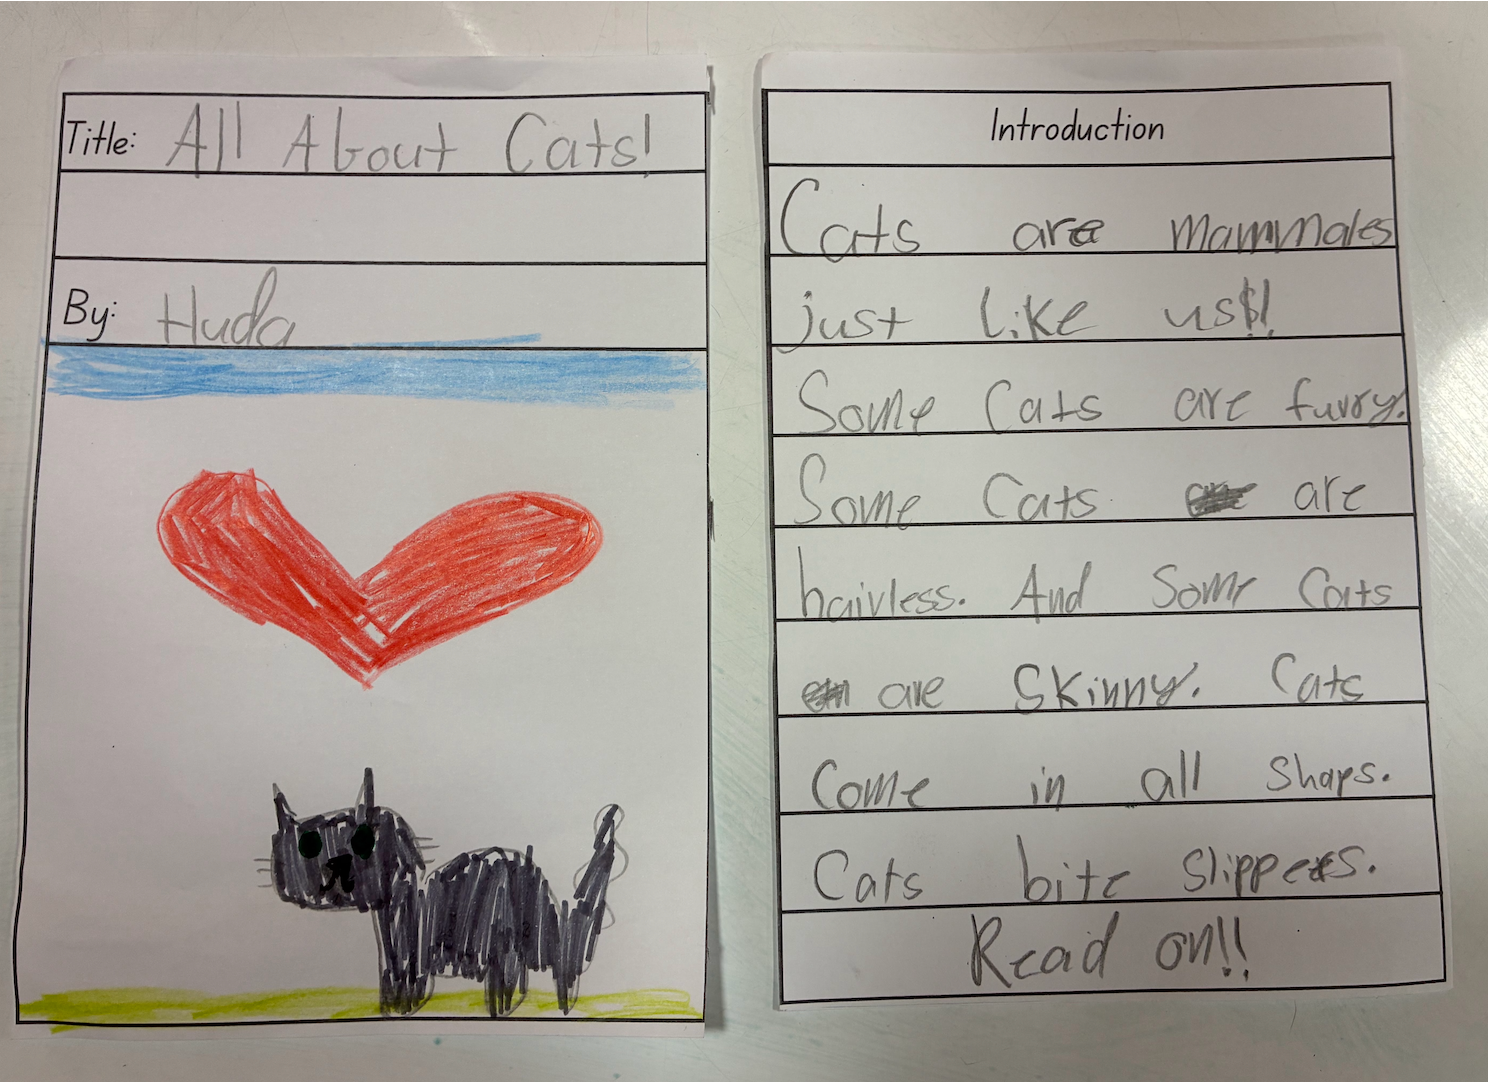 Title: All About Cats!
By: Huda
Introduction
Cats are mammales
just like us!!
Some Cats are furry.
Some Cats are
hairless. And Some Cats
are Skinny. Cats
Come in all Shaps.
Cats bite Slippers.
Read on!!